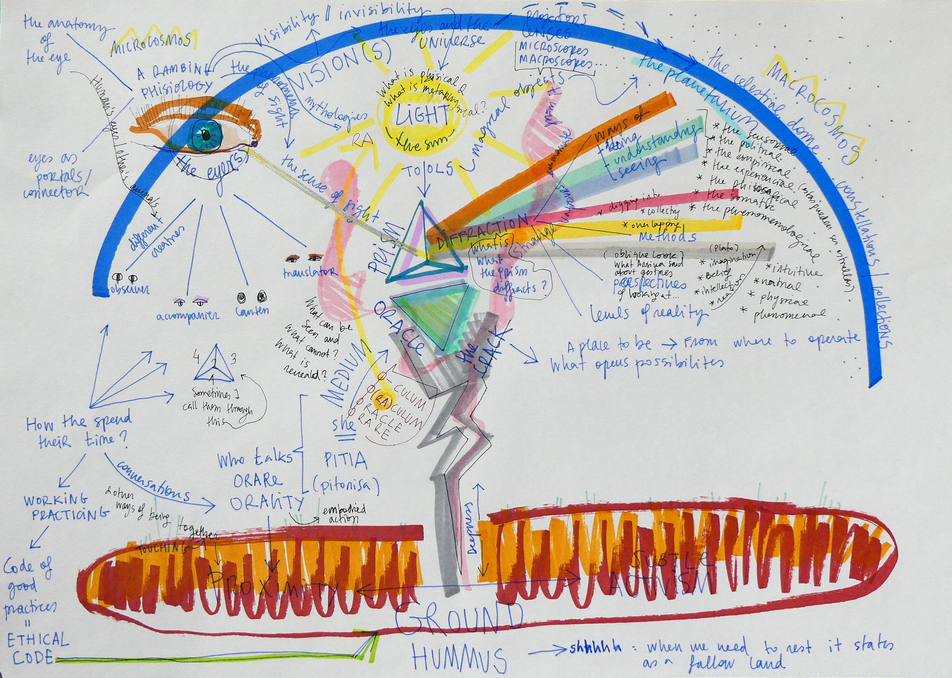 the anatomy
of
the eye
MICROCOSMOS
A RAMBING
PHISIOLOGY
eyes as
portals/
connector
the eye(s)
visibility || invisibility
the eyes and the
UNIVERSE
VISION(S)
the phenomena
of sight
mythologies
the sense of sight
What is physical
What is
LIGHT
the sun
RA
TOOLS
magical objects
LENSES
MICROSCOPES
MACPOSCOPES...
the planetarium
the celestial dome
MACROCOSMOS
constellations/collections
ways of
being
understanding
seeing
* the sensorial
* the political
* the empirical
* the experiencial
* the philosofical
* the somatic
* the phenomenological
digging into
* collecting
* overlapping
methods
PRISM
DIFFRACTION
What is
What
the Prism
diffracts?
(oblique look)
perspectives
of looking at...
levels of reality
(Plato)
* imagination
* Belief
* intellect
* reason
* intuitive
* natural
* physical
* phenomenal
different
creatures
observer
acompanier
translator
What can be
seen and
what cannot?
What is
revealed?
ORACLE
the CRACK
A place to be → From where to operate
What opens possibilities
MEDIUM
she
||
PITIA
(pitonisa)
CULUM
ORACULUM
ORACLE
ORARE
4 1 3
Sometimes I
call them through
this
How the spend
their time?
Who talks
ORARE
ORALITY
embodied
action
conversations
& other
ways of being
together
TOUCHING
WORKING
PRACTICING
Code of
good
practices
=
ETHICAL
CODE
Deepness
PROXIMITY
SUBTLE
ACTIVISM
GROUND
HUMMUS
→ shhhhh = when we need to rest it states
as a fallow land